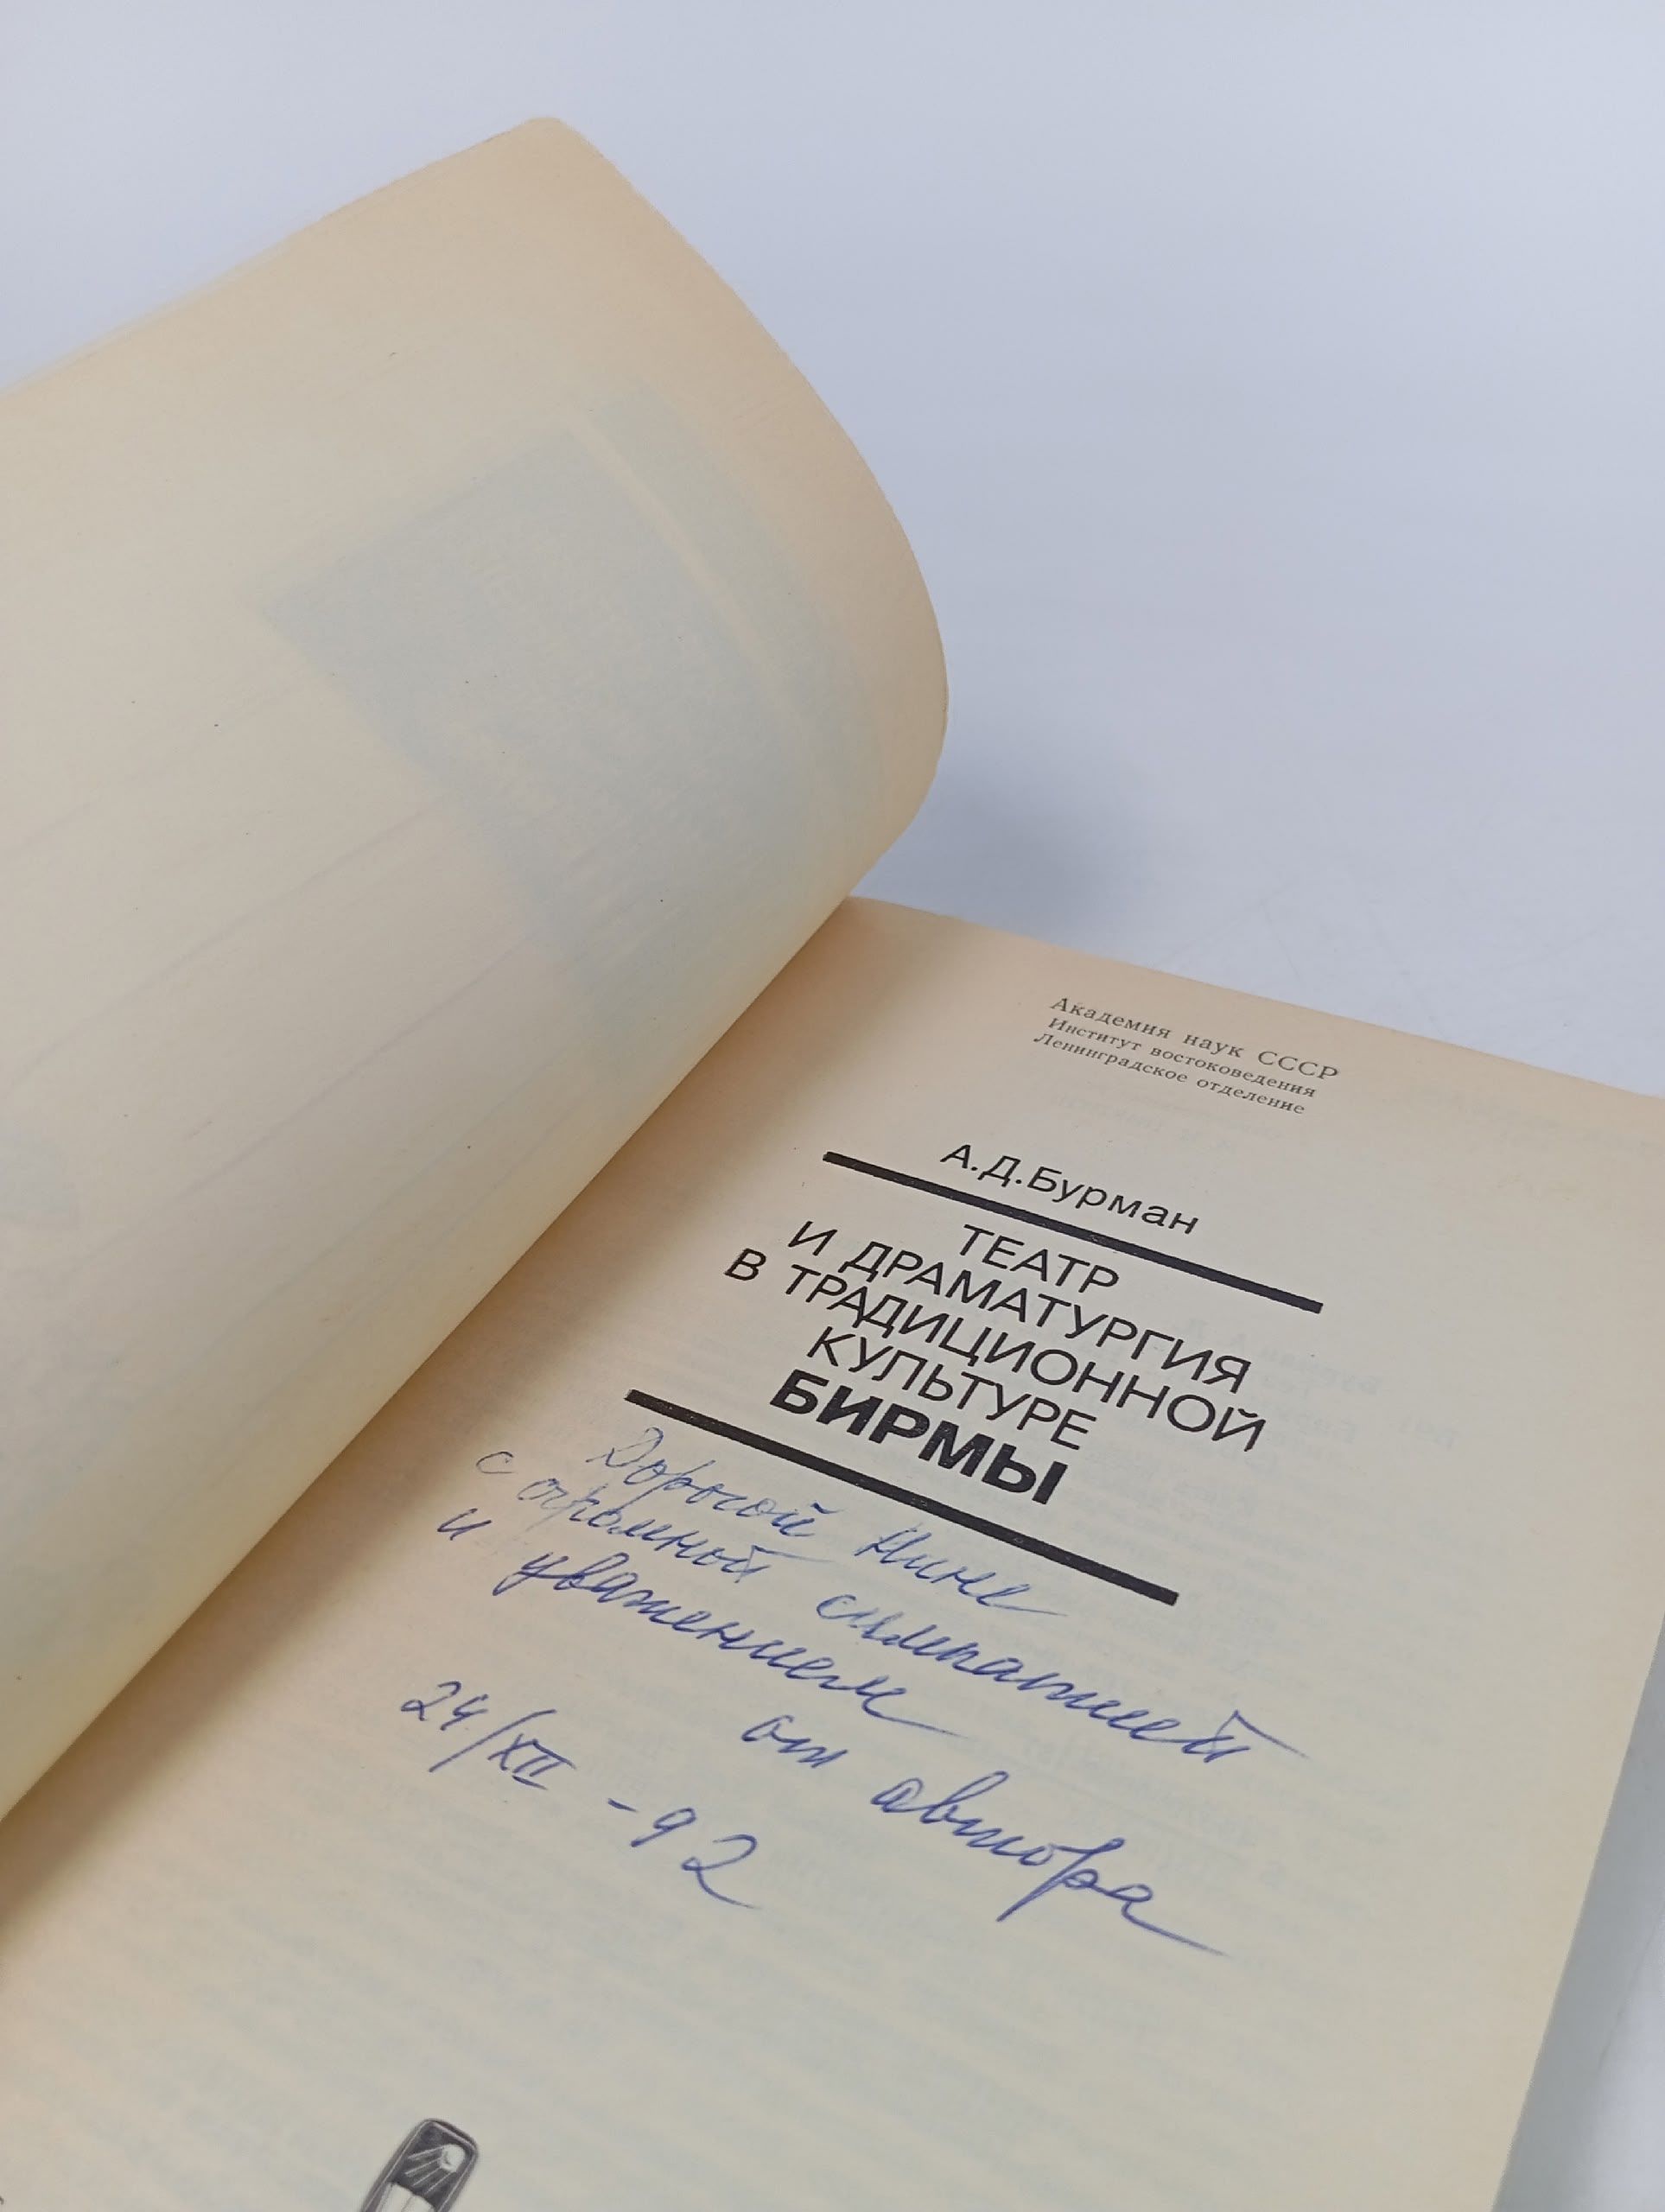 Академия наук СССР
Институт востоковедения
Ленинградское отделение
А.Д.Бурман
ТЕАТР
И ДРАМАТУРГИЯ
В ТРАДИЦИОННОЙ
КУЛЬТУРЕ
БИРМЫ
Дорогой Нине
с огромной симпатией
и уважением
от автора
24/XII - 92